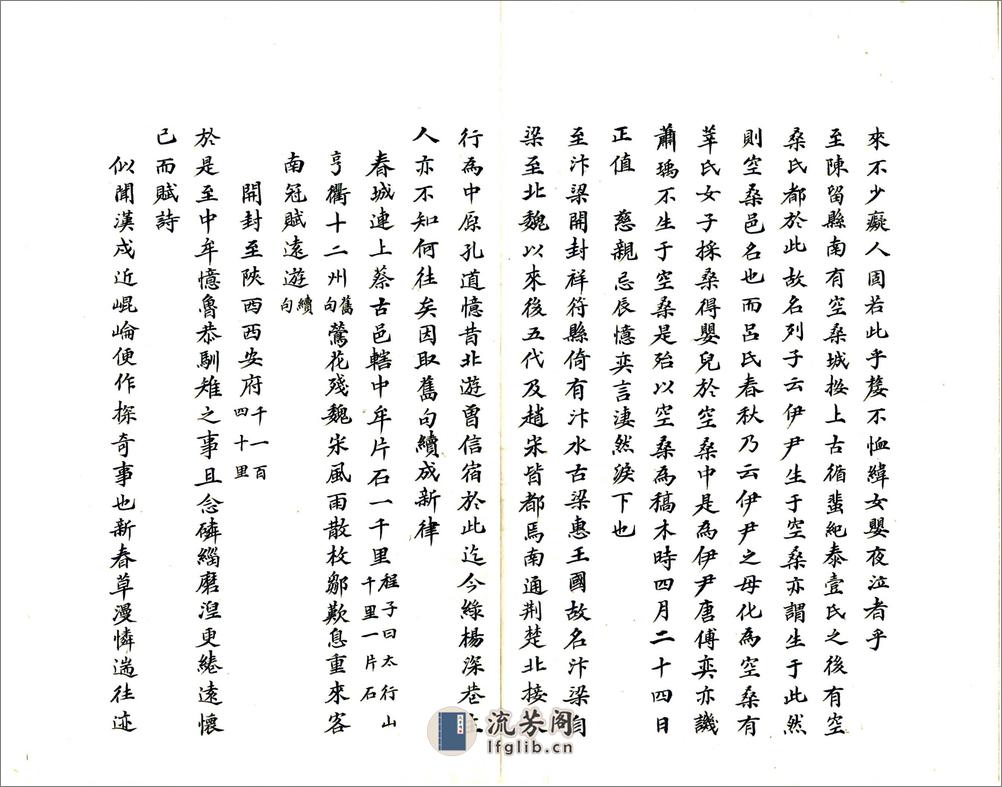 來不少癡人固若此乎嫠不恤緯女嬰夜泣者乎
至陳留縣南有空桑城按上古循蜚紀泰壹氏之後有空
桑氏都於此故名列子云伊尹生于空桑亦謂生于此然
則空桑邑名也而呂氏春秋乃云伊尹之母化為空桑有
莘氏女子採桑得嬰兒於空桑中是為伊尹唐傅奕亦譏
蕭瑀不生于空桑是殆以空桑為稿木時四月二十四日
正值 慈親忌辰憶奕言淒然淚下也
至汴梁開封祥符縣倚有汴水古梁惠王國故名汴梁自
梁至北魏以來後五代及趙宋皆都焉南通荆楚北接
行為中原孔道憶昔北遊曾信宿於此迄今綠楊深巷
人亦不知何往矣因取舊句續成新律
春城連上蔡古邑轄中牟片石一千里程子曰太行山千里一片石
亨衢十二州舊句鶯花殘魏宋風雨散枚鄒歎息重來客
南冠賦遠遊續句
開封至陝西西安府千一百四十里
於是至中牟憶魯恭馴雉之事且念磷緇磨湼更綣遠懷
已而賦詩
似聞漢戍近崐崘便作探奇事也新春草漫憐遄往迹
流芳阁
lfglib.cn